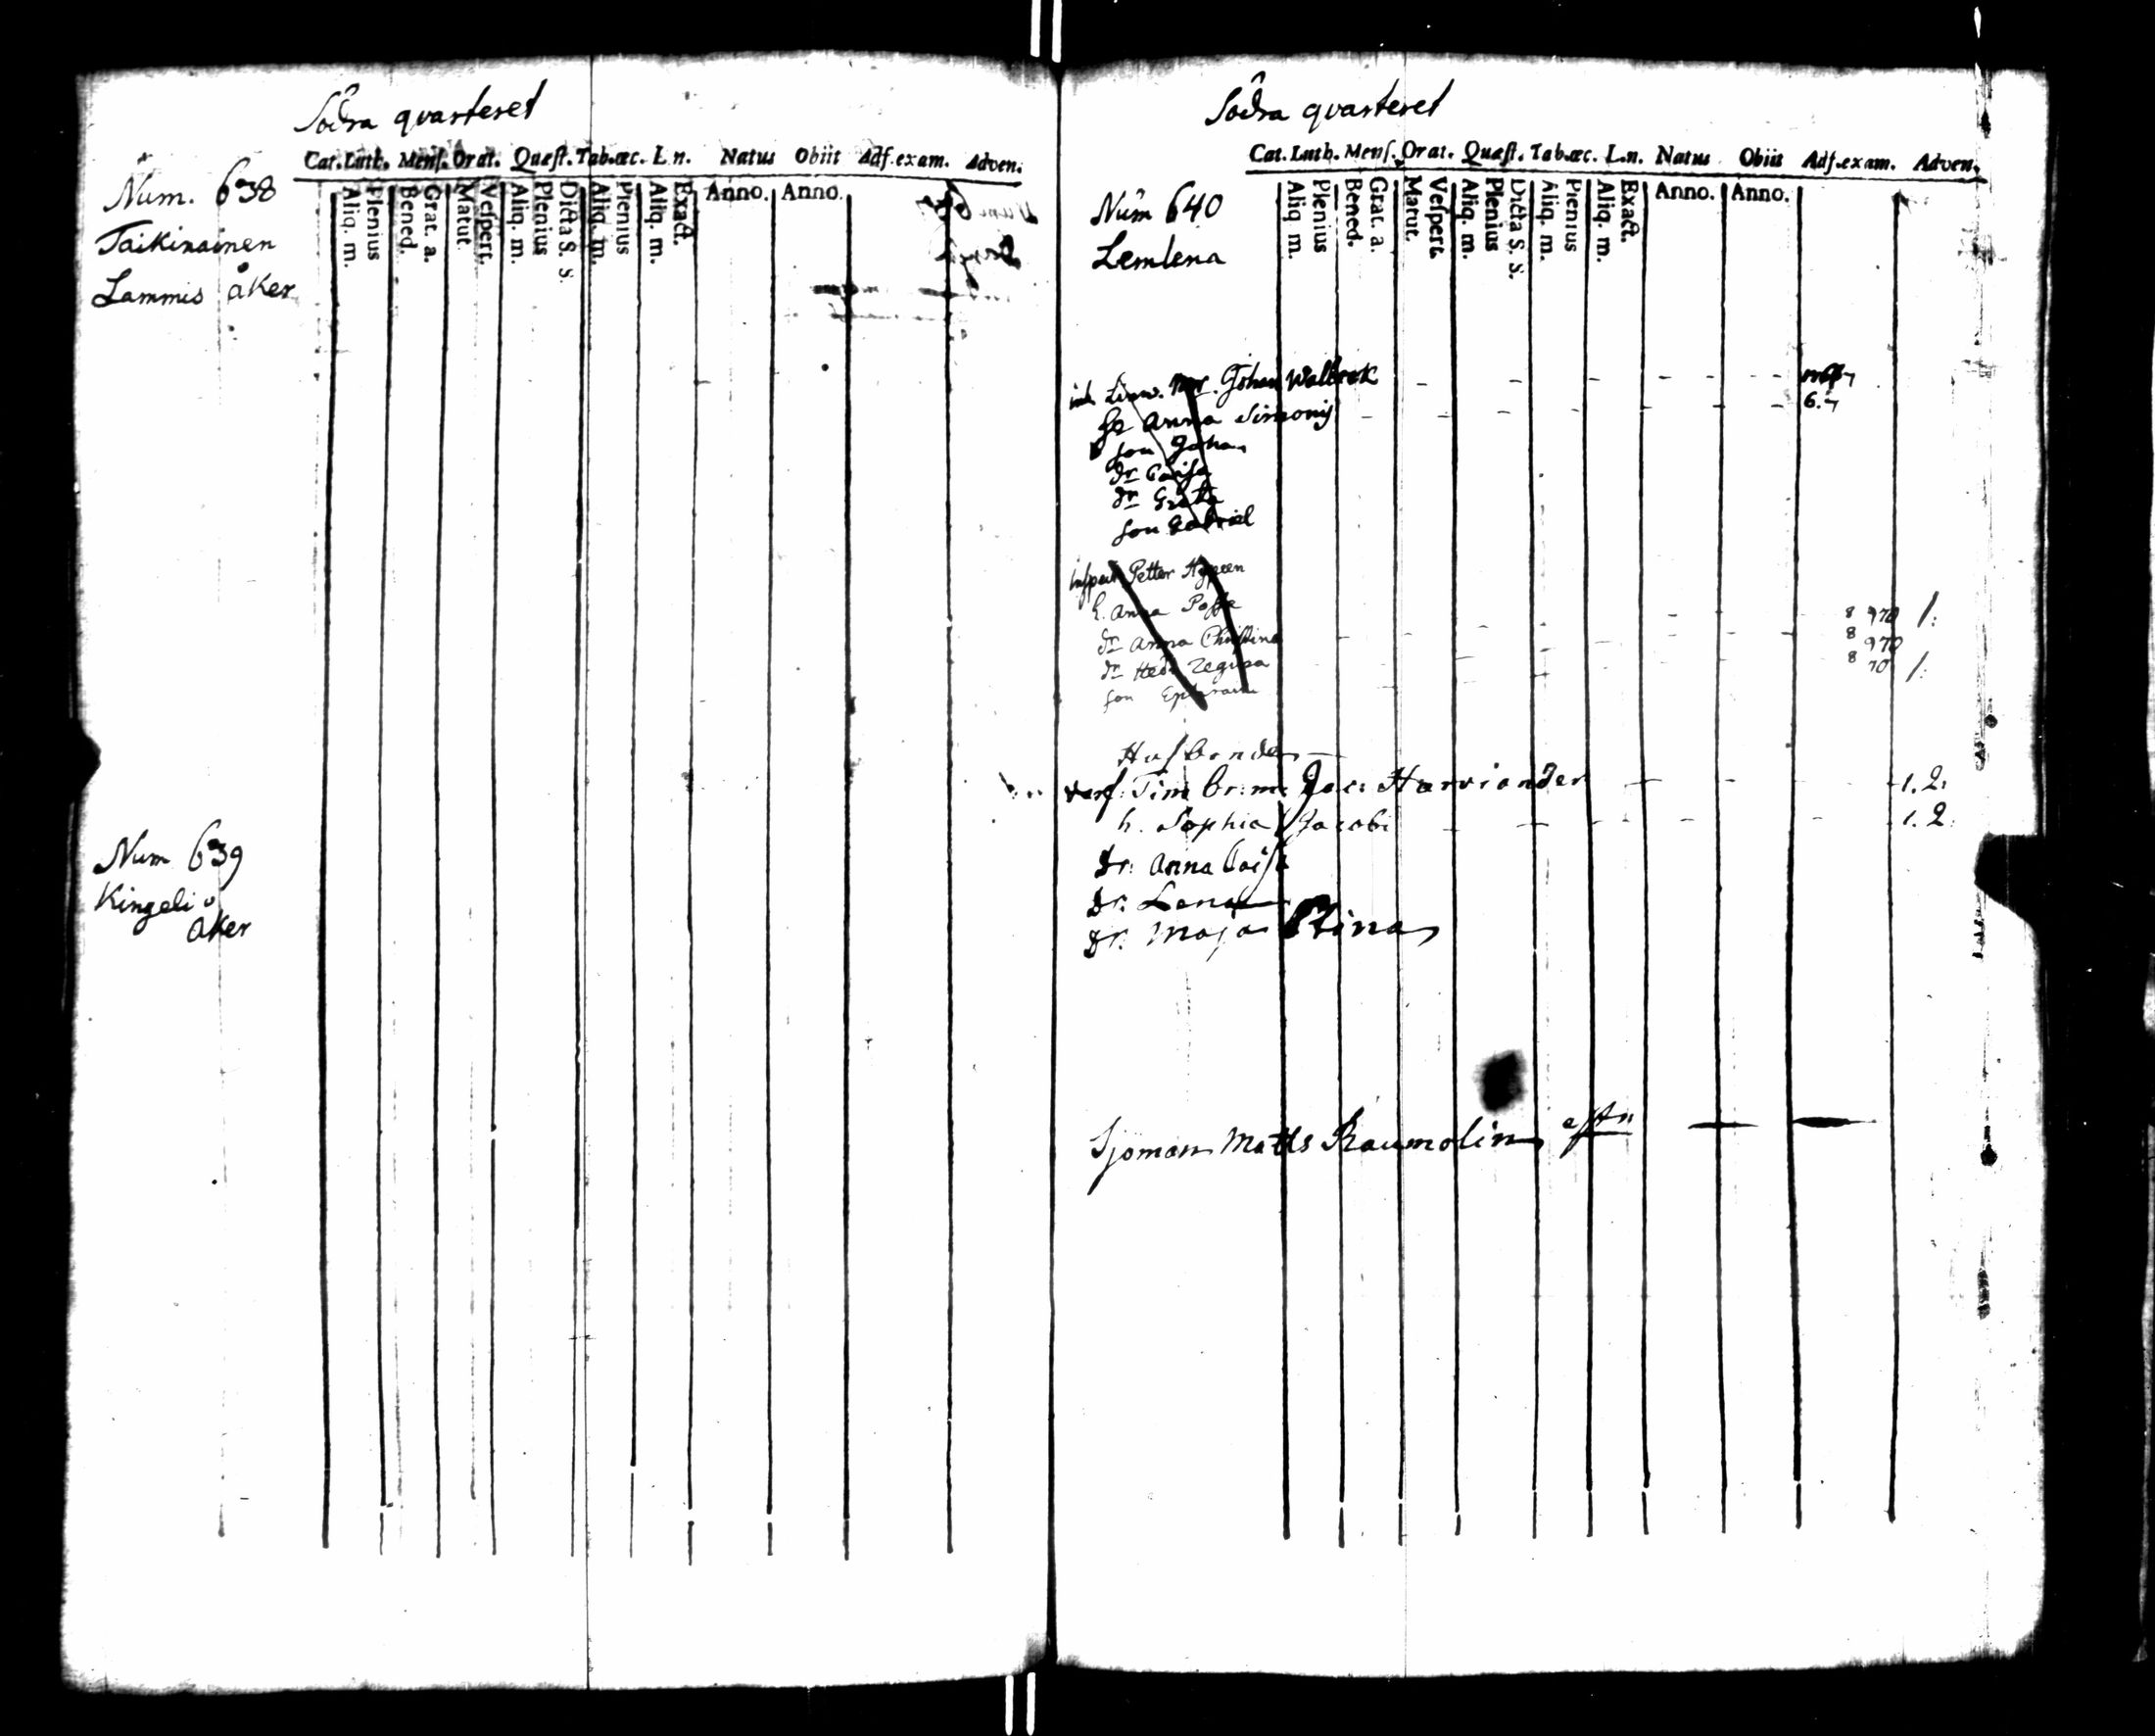 Södra qvarteret
Cat. Luth. Menſ. Orat. Quæſt. Tab. œc. L. n. Natus Obiit Adſ. exam. Adven.
Aliq. m. Plenius Bened. Grat. a. Matut. Veſpert. Aliq. m. Plenius Dicta S. S. Aliq. m. Plenius Aliq. m. Exact. Anno. Anno.
Num. 638
Taikinainen
Lammis åker
Num 639
Kingeli
åker
Södra qvarteret
Cat. Luth. Menſ. Orat. Quæſt. Tab. œc. L. n. Natus Obiit Adſ. exam. Adven.
Aliq. m. Plenius Bened. Grat. a. Matut. Veſpert. Aliq. m. Plenius Dicta S. S. Aliq. m. Plenius Aliq. m. Exact. Anno. Anno.
Num 640
Lemlena
Johan Wallbeck
Anna Simonis 6.7
son Johan
dr Caisa
dr Greta
son Gabriel
Petter
h. Anna Posse 8 970 /:
dr Anna Christina 8 970
dr Hed. 8 70 /:
son Ephraim
Husbonde
Timbr: m: Jac: Harviander 1. 2:
h. Sophia Jacobi 1. 2:
dr: Anna Caisa
dr: Lena
dr: Maja Stina
Sjöman Matts Raumolin